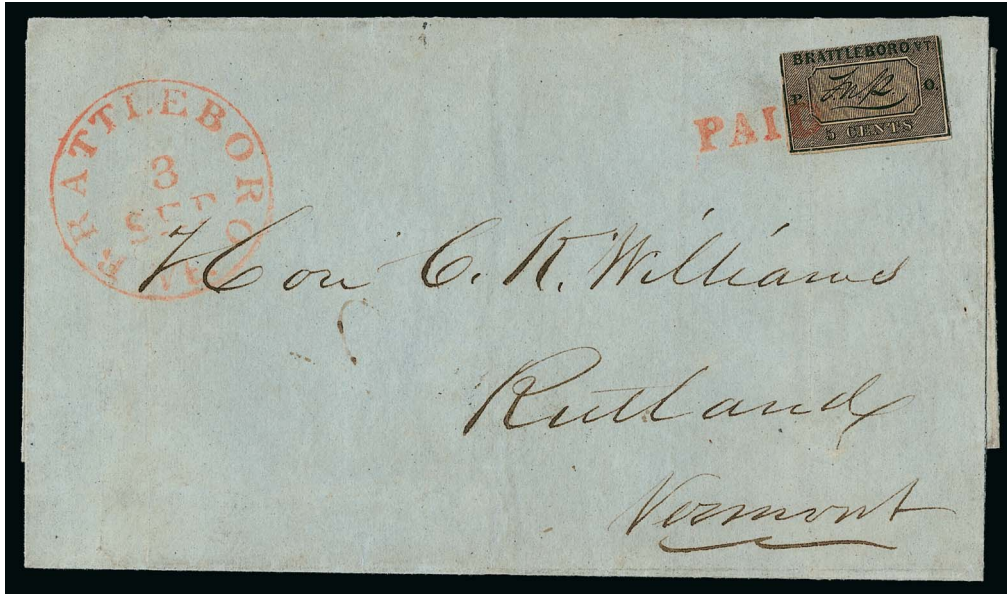 BRATTLEBORO VT.
P. O.
5 CENTS
PAID
BRATTLEBORO
3
SEP
Hon C. K. Williams
Rutland
Vermont